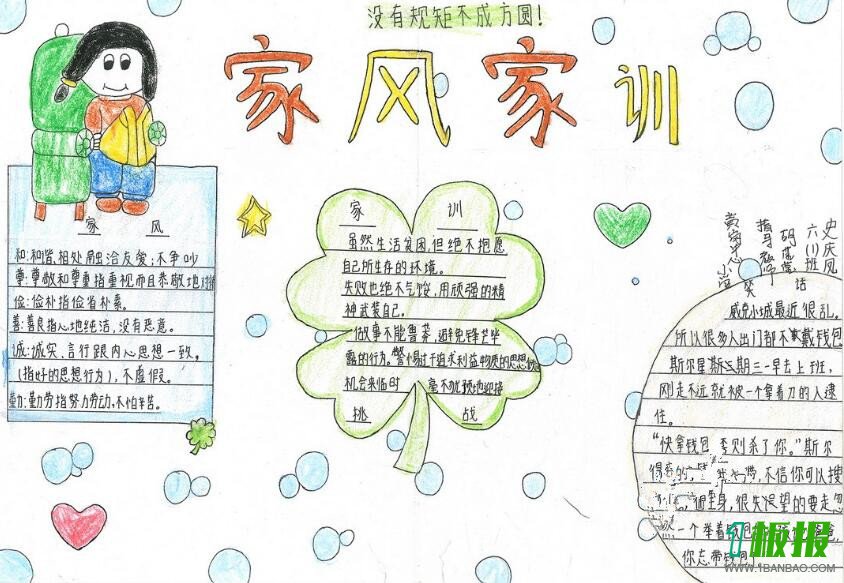 没有规矩不成方圆!
家风家训
家 风
和:和谐,相处融洽友爱,不争吵
尊:尊敬和尊重指重视而且恭敬地对待
俭:俭朴指俭省朴素。
善:善良指心地纯洁,没有恶意。
诚:诚实,言行跟内心思想一致。
(指好的思想行为),不虚假。
勤:勤劳指努力劳动,不怕辛苦。
家 训
虽然生活贫困,但绝不抱怨
自己所生存的环境。
失败也绝不气馁,用顽强的精
神武装自己。
做事不能鲁莽,避免锋芒毕
露的行为。警惕过于追求利益物质的思想
机会来临时 毫不犹预地迎接
挑 战
史庆凤
六(1)班
指导教师
笑 话
威克小城最近很乱。
所以很多人出门都不戴钱包
斯尔星期三一早去上班,
刚走不远就被一个拿着刀的人逮
住。
“快拿钱包,否则杀了你。”斯尔
不信你可以搜
很失望的要走
一个举着钱包
你忘带钱包
1板报
WWW.1BANBAO.COM